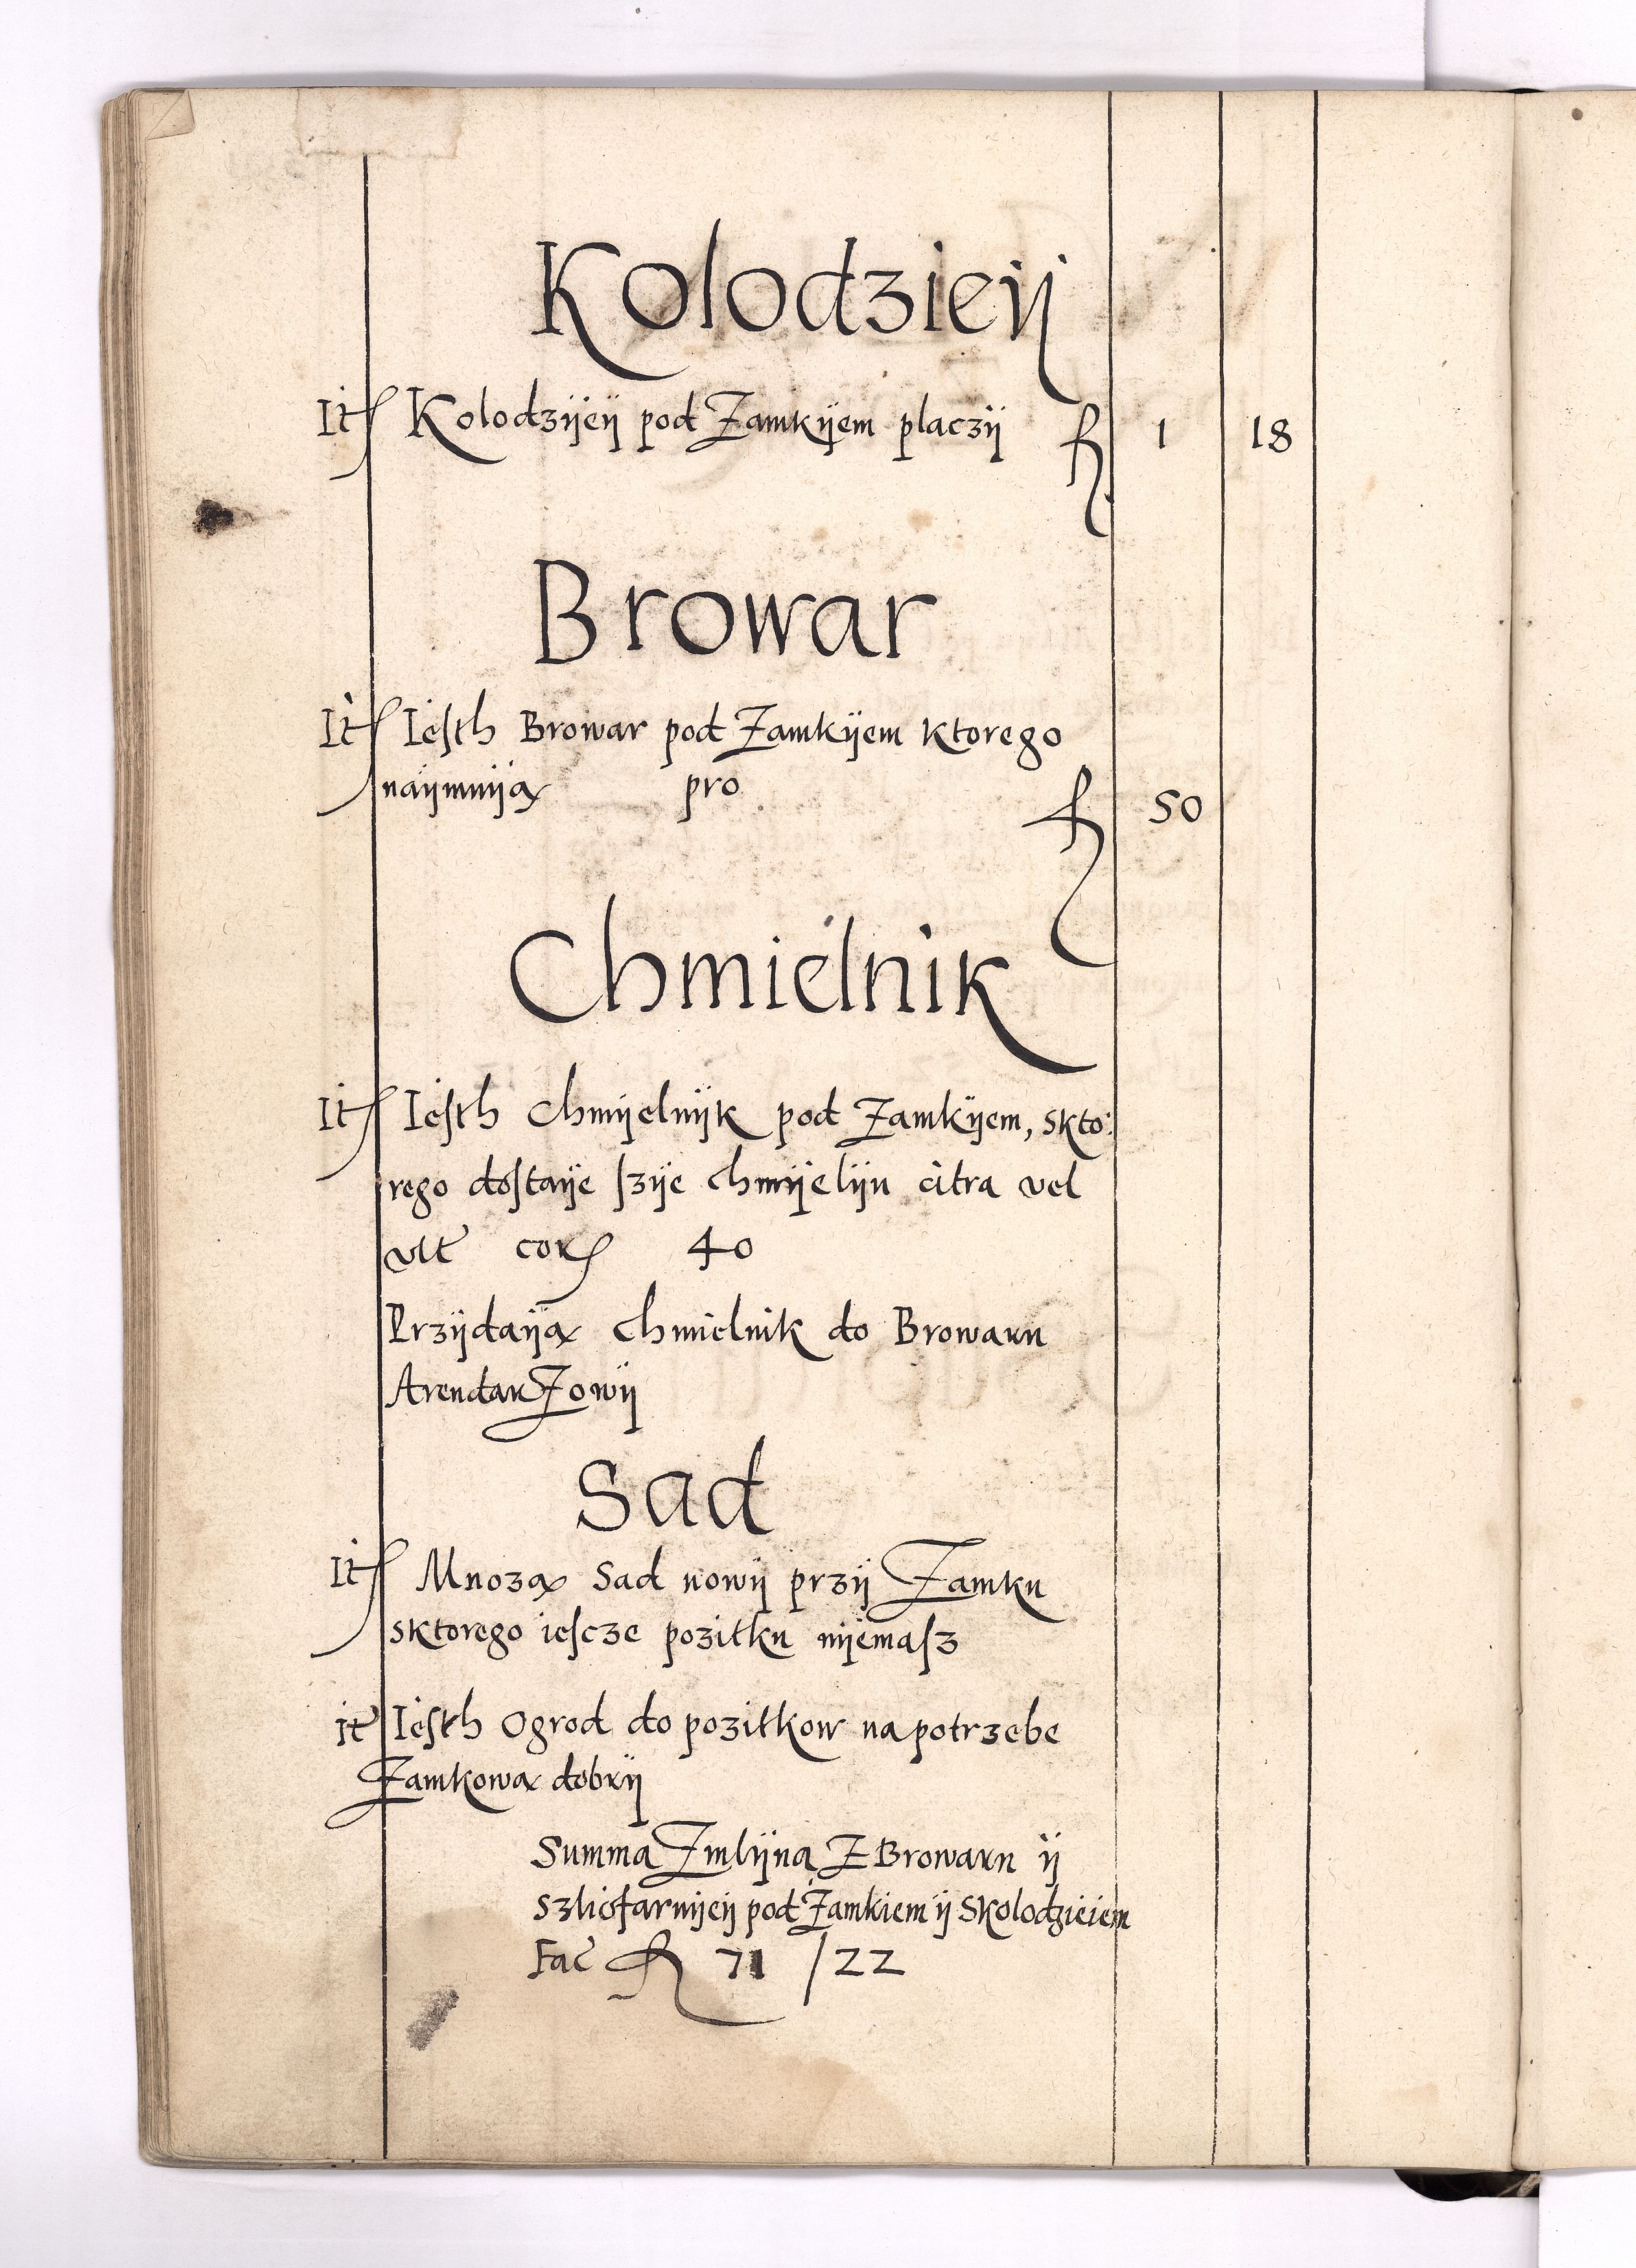 Kolodzieij
It Kolodzijeij pod Zamkijem placzij fl 1 18
Browar
It Iesth Browar pod Zamkijem ktorego
naijmuiją pro fl 50
Chmielnik
It Iesth Chmijelnijk pod Zamkijem, skto:
rego dostaije szije chmijeliju citra vel
vlt cor 40
Przijdaiją Chmielnik do Browaru
ArendarZowij
Sad
It Mnozą Sad nowij przij Zamku
sktorego iescze pozitku nijemasz
it Iesth Ogrod do pozitkow na potrzebe
Zamkową dobrij
Summa Zmlijna Z Browaru ij
Szlifarnijeij pod Zamkiem ij Skolodzieiem
Fac fl 71 / 22